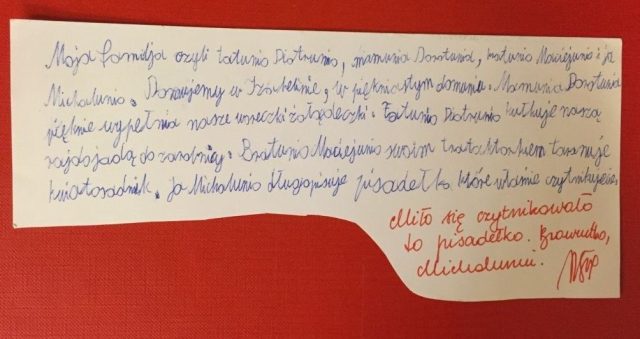 Moja familja czyli tatunio Piotrunio, mamunia Dorotunia, bratunio Maciejunio i ja
Michalunio. Domujemy w Izabelinie, w pięknastym domuniu. Mamunia Dorotunia
pięknie wypełnia nasze woreczki żołądeczki. Tatunio Piotrunio kulkuje naszą
do Bratunio Maciejunio swoim taranuje
kwiatosadnik. Ja Michalunio długopisuje pisadełko, które właśnie czytnikujecie.
Miło się czytnikowało
to pisadełko.
Michaluniu.